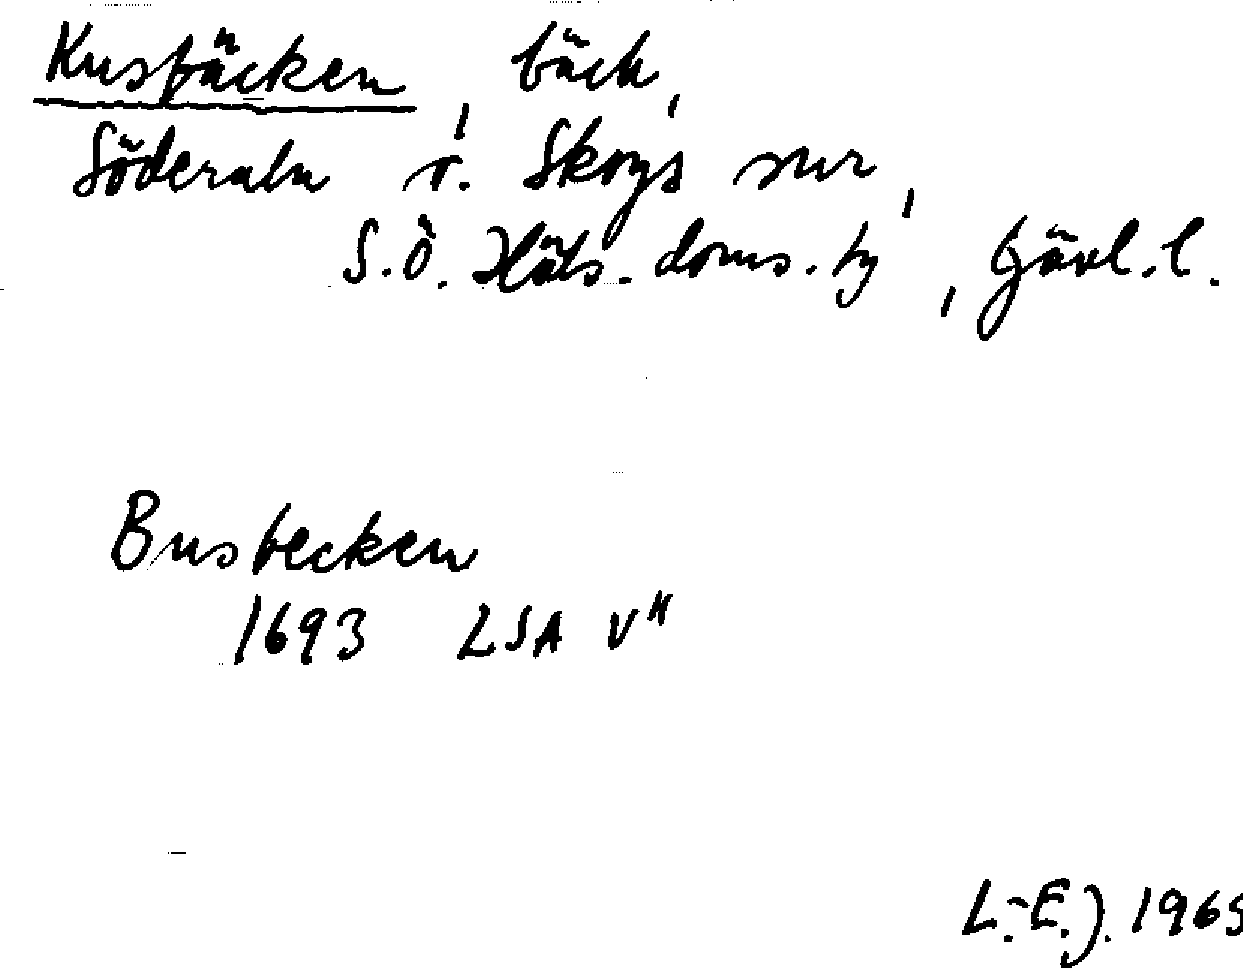 Kusbäcken, bäck,
Söderala o. Skogs snr,
S.Ö. Häls. doms. tg, Gävl. l.
Busbecken
1693 LSA V"
L.-E.J. 1965